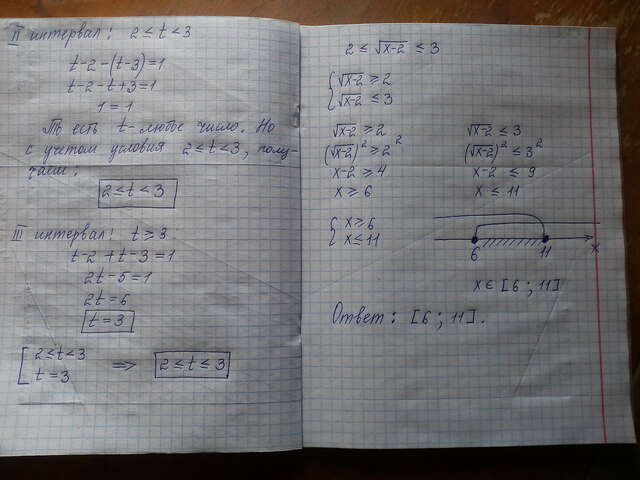 II интервал: 2 ≤ t < 3
t-2-(t-3)=1
t-2-t+3=1
1=1
То есть t-любое число. Но
с учетом условия 2≤t<3, полу-
чаем:
2≤t<3
III интервал: t≥3:
t-2+t-3=1
2t-5=1
2t=6
t=3
[ 2≤t<3
t=3 => 2≤t≤3
2 ≤ √x-2 ≤ 3
{ √x-2 ≥ 2
√x-2 ≤ 3
√x-2 ≥ 2 √x-2 ≤ 3
(√x-2)² ≥ 2² (√x-2)² ≤ 3²
x-2 ≥ 4 x-2 ≤ 9
x ≥ 6 x ≤ 11
{ x≥6
x≤11
6 11 x
x∈[6;11]
Ответ: [6;11].